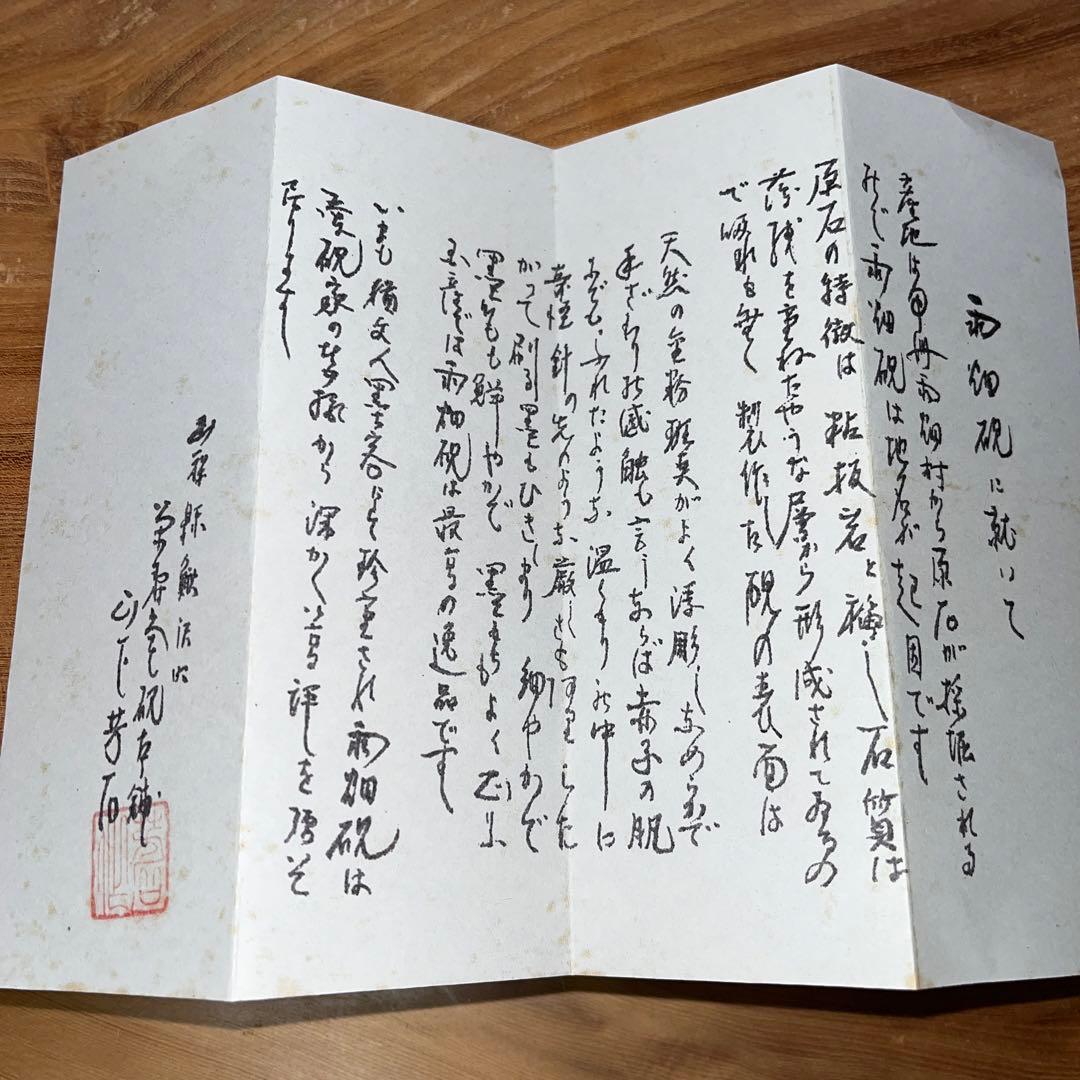 雨畑硯に就いて
産地は甲州雨畑村から原石が採堀される
ので雨畑硯は地名が起因です
原石の特徴は粘板岩と稱し石質は
薄残を重ねたやうな層から形成されて居るの
で 無く 製作した硯の表面は
天然の金粉班点がよく浮彫しなめらかで
手ざわりの感触も言うならば赤子の肌
にでもふれたような温くもりの中に
針の先のような厳しさも
かつて刷る墨もひきしまり 細やかで
墨色も鮮やかで 墨 もよく
では雨畑硯は最高の逸品です
いまも諸文人墨客に 珍重され雨畑硯は
愛硯家の皆様から深かく 評を
居ります
山梨縣鰍沢町
硯本舗
山下 芳石